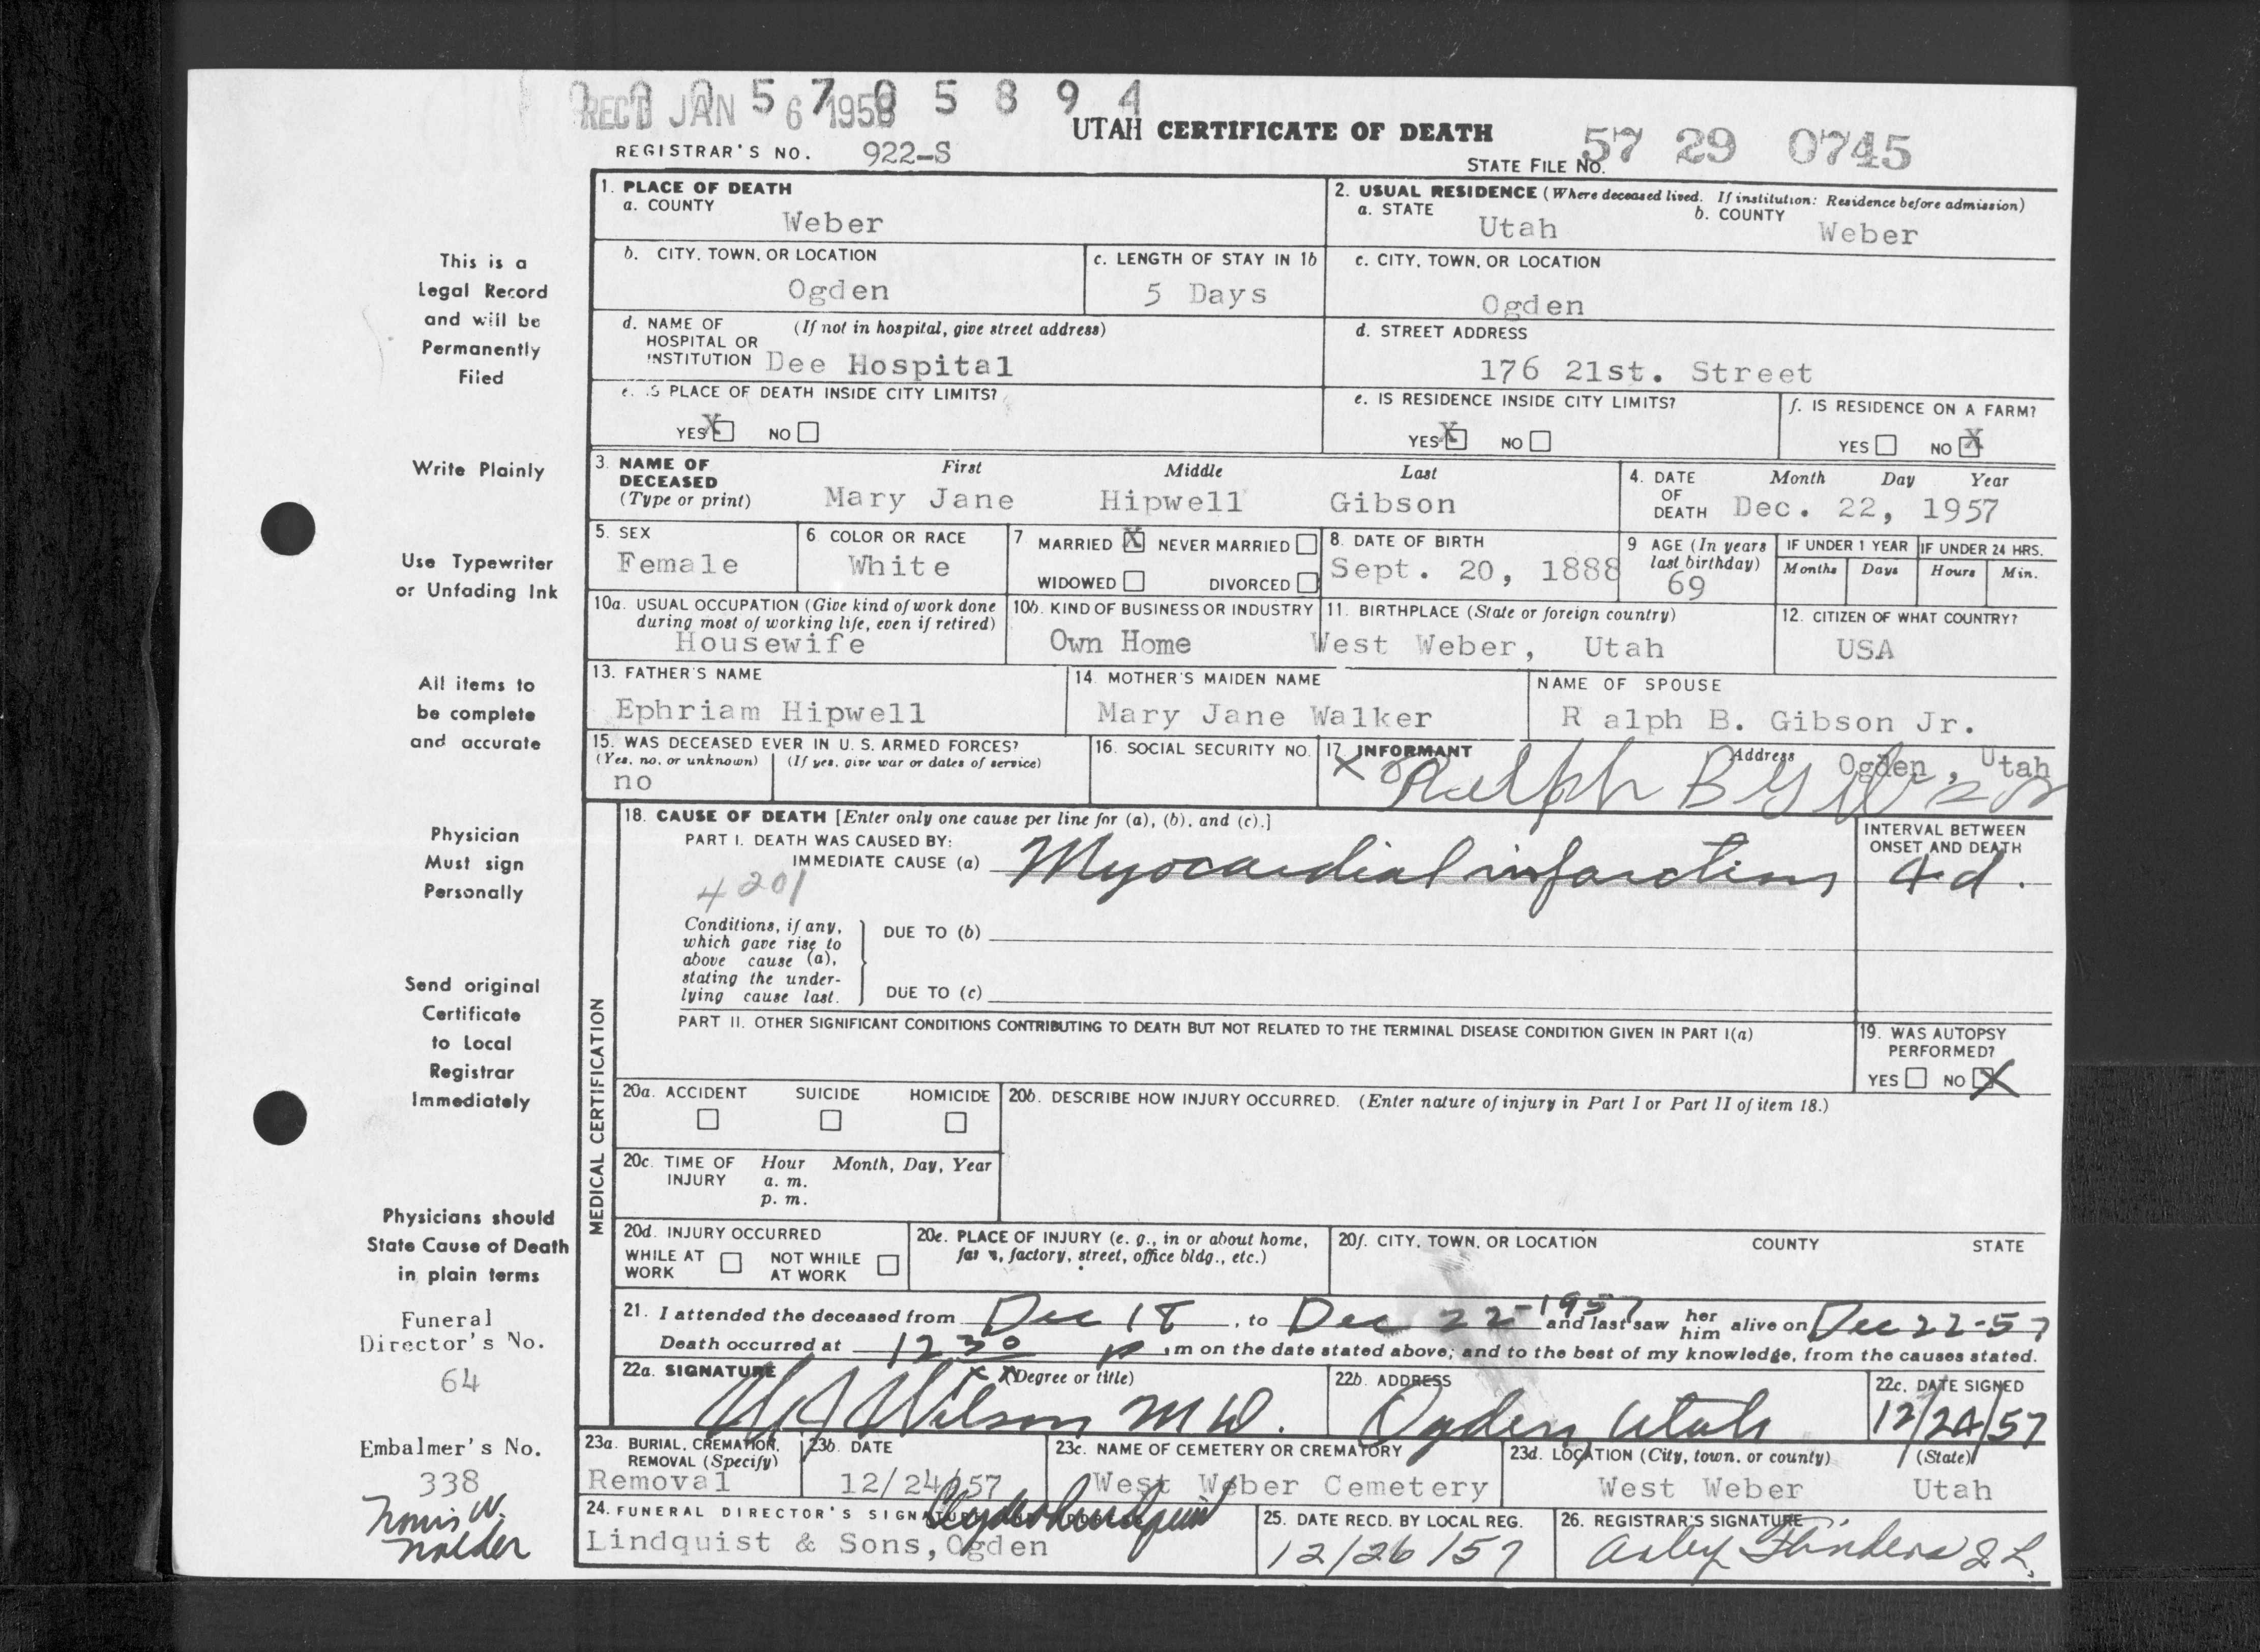 0 0 0 5 7 0 5 8 9 4
REC'D JAN 6 1958
UTAH CERTIFICATE OF DEATH
REGISTRAR'S NO. 922-S
STATE FILE NO. 57 29 0745
1. PLACE OF DEATH
a. COUNTY
Weber
2. USUAL RESIDENCE (Where deceased lived. If institution: Residence before admission)
a. STATE b. COUNTY
Utah Weber
b. CITY, TOWN, OR LOCATION
Ogden
c. LENGTH OF STAY IN 1b
5 Days
c. CITY, TOWN, OR LOCATION
Ogden
d. NAME OF (If not in hospital, give street address)
HOSPITAL OR
INSTITUTION Dee Hospital
d. STREET ADDRESS
176 21st. Street
e. IS PLACE OF DEATH INSIDE CITY LIMITS?
YES X NO
e. IS RESIDENCE INSIDE CITY LIMITS?
YES X NO
f. IS RESIDENCE ON A FARM?
YES NO X
3. NAME OF DECEASED (Type or print)
First Middle Last
Mary Jane Hipwell Gibson
4. DATE OF DEATH
Month Day Year
Dec. 22, 1957
5. SEX
Female
6 COLOR OR RACE
White
7 MARRIED X NEVER MARRIED
WIDOWED DIVORCED
8. DATE OF BIRTH
Sept. 20, 1888
9 AGE (In years last birthday)
69
IF UNDER 1 YEAR
Months Days
IF UNDER 24 HRS.
Hours Min.
10a. USUAL OCCUPATION (Give kind of work done
during most of working life, even if retired)
Housewife
10b. KIND OF BUSINESS OR INDUSTRY
Own Home
11. BIRTHPLACE (State or foreign country)
West Weber, Utah
12. CITIZEN OF WHAT COUNTRY?
USA
13. FATHER'S NAME
Ephriam Hipwell
14. MOTHER'S MAIDEN NAME
Mary Jane Walker
NAME OF SPOUSE
R alph B. Gibson Jr.
15. WAS DECEASED EVER IN U. S. ARMED FORCES?
(Yes, no, or unknown) (If yes, give war or dates of service)
no
16. SOCIAL SECURITY NO.
17. INFORMANT Address
Ogden, Utah
X Ralph B Gibson
18. CAUSE OF DEATH [Enter only one cause per line for (a), (b), and (c).]
PART I. DEATH WAS CAUSED BY:
IMMEDIATE CAUSE (a) Myocardial infarction
4201
INTERVAL BETWEEN
ONSET AND DEATH
4 d.
Conditions, if any,
which gave rise to
above cause (a),
stating the under-
lying cause last.
DUE TO (b)
DUE TO (c)
PART II. OTHER SIGNIFICANT CONDITIONS CONTRIBUTING TO DEATH BUT NOT RELATED TO THE TERMINAL DISEASE CONDITION GIVEN IN PART I(a)
19. WAS AUTOPSY
PERFORMED?
YES NO X
MEDICAL CERTIFICATION
20a. ACCIDENT SUICIDE HOMICIDE
20b. DESCRIBE HOW INJURY OCCURRED. (Enter nature of injury in Part I or Part II of item 18.)
20c. TIME OF INJURY Hour Month, Day, Year
a. m.
p. m.
20d. INJURY OCCURRED
WHILE AT WORK NOT WHILE AT WORK
20e. PLACE OF INJURY (e. g., in or about home,
farm, factory, street, office bldg., etc.)
20f. CITY, TOWN, OR LOCATION COUNTY STATE
21. I attended the deceased from Dec 18, to Dec 22-1957 and last saw her him alive on Dec 22-57
Death occurred at 12 30 p .m on the date stated above; and to the best of my knowledge, from the causes stated.
22a. SIGNATURE (Degree or title)
W J Wilson MD.
22b. ADDRESS
Ogden, Utah
22c. DATE SIGNED
12/24/57
23a. BURIAL, CREMATION,
REMOVAL (Specify)
Removal
23b. DATE
12/24/57
23c. NAME OF CEMETERY OR CREMATORY
West Weber Cemetery
23d. LOCATION (City, town, or county) (State)
West Weber Utah
24. FUNERAL DIRECTOR'S SIGNATURE AND ADDRESS
Clyde Lindquist
Lindquist & Sons, Ogden
25. DATE RECD. BY LOCAL REG.
12/26/57
26. REGISTRAR'S SIGNATURE
Flinders
This is a
Legal Record
and will be
Permanently
Filed
Write Plainly
Use Typewriter
or Unfading Ink
All items to
be complete
and accurate
Physician
Must sign
Personally
Send original
Certificate
to Local
Registrar
Immediately
Physicians should
State Cause of Death
in plain terms
Funeral
Director's No.
64
Embalmer's No.
338